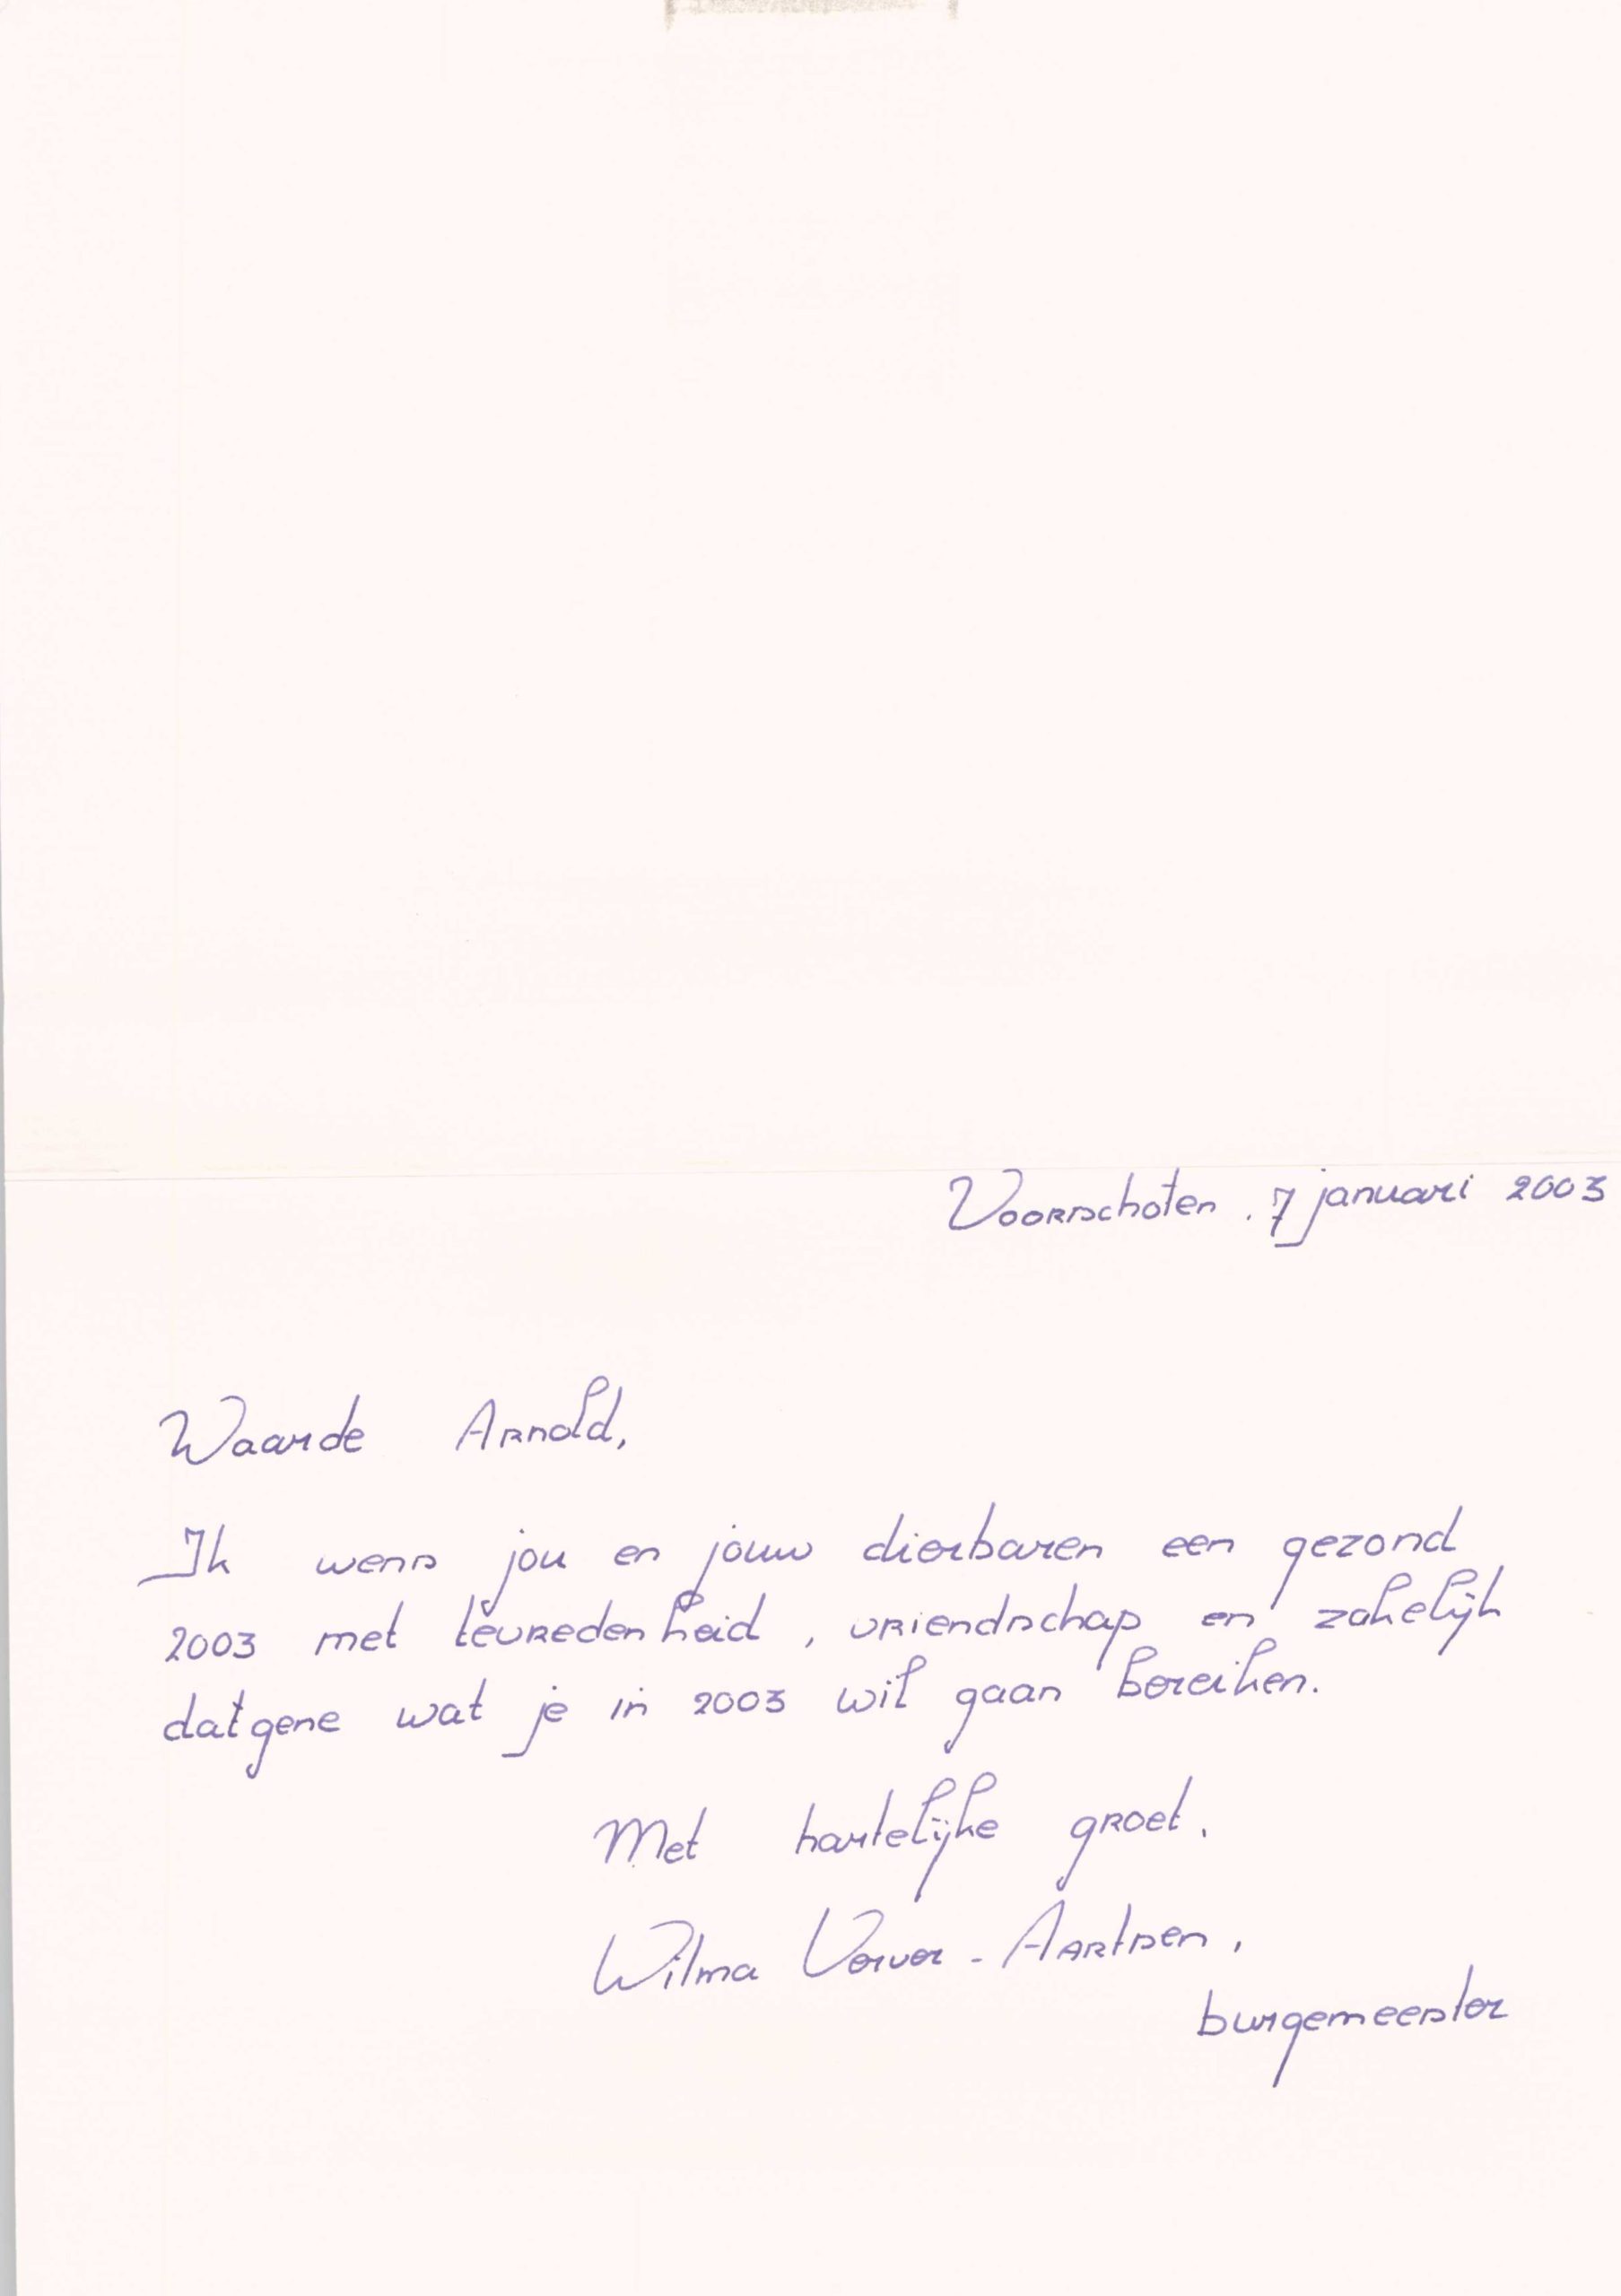 Voorschoten, 7 januari 2003
Waarde Arnold,
Ik wens jou en jouw dierbaren een gezond
2003 met tevredenheid, vriendschap en zakelijk
datgene wat je in 2003 wil gaan bereiken.
Met hartelijke groet,
Wilma Verver-Aartsen,
burgemeester